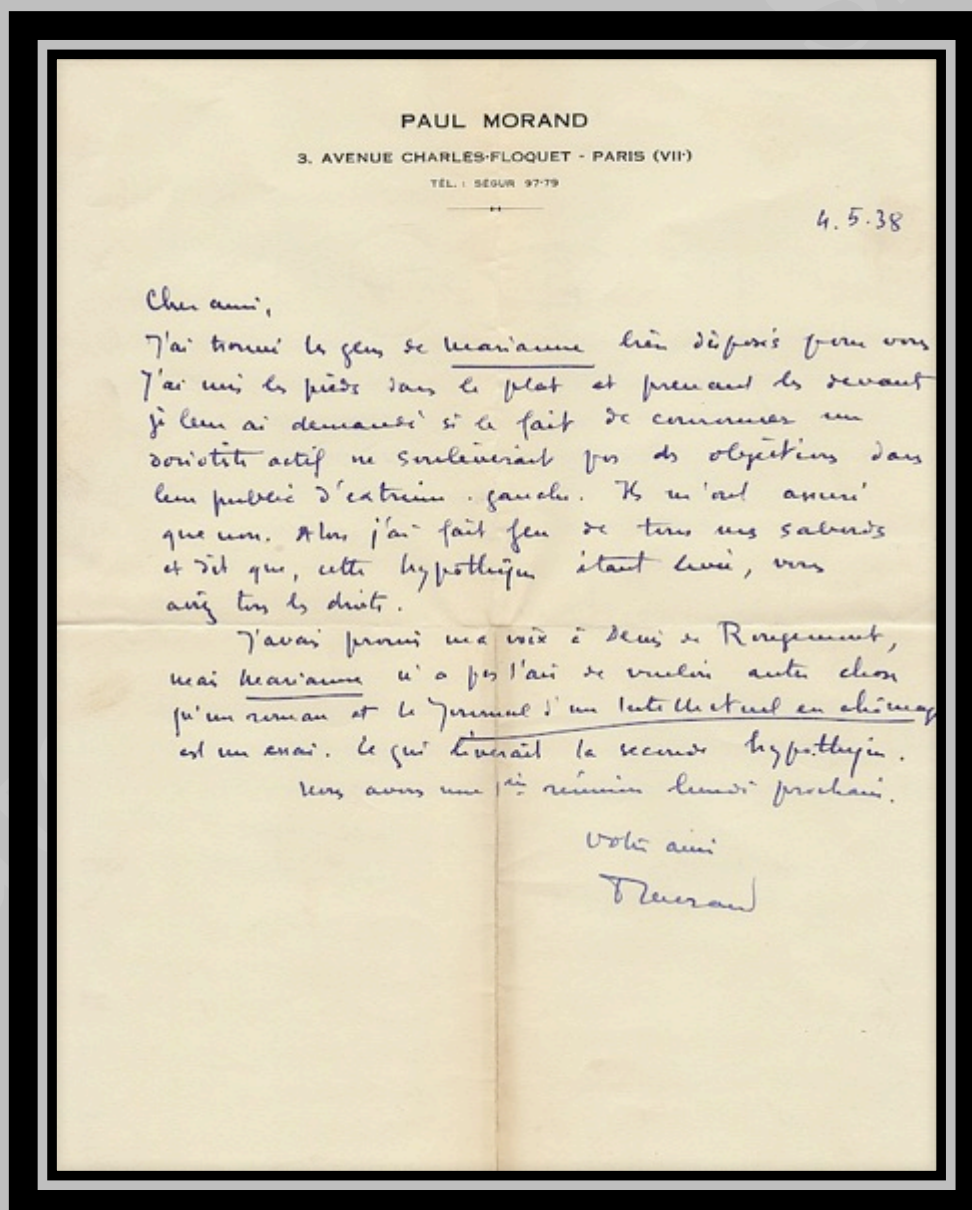 PAUL MORAND
3, AVENUE CHARLES-FLOQUET - PARIS (VIIe)
TÉL. : SÉGUR 97-79
4.5.38
Cher ami,
J'ai trouvé les gens de Marianne bien disposés pour vous
J'ai mis les pieds dans le plat et prenant les devant
je leur ai demandé si le fait de couronner un
doriotiste actif ne soulèverait pas des objections dans
leur public d'extrême-gauche. Ils m'ont assuré
que non. Alors j'ai fait feu de tous mes sabords
et dit que, cette hypothèque étant levée, vous
aviez tous les droits.
J'avais promis ma voix à Denis de Rougemont,
mais Marianne n'a pas l'air de vouloir autre chose
qu'un roman et le Journal d'un Intellectuel en chômage
est un essai. Ce qui lèverait la seconde hypothèque.
Nous avons une 1ère réunion lundi prochain.
Votre ami
Morand